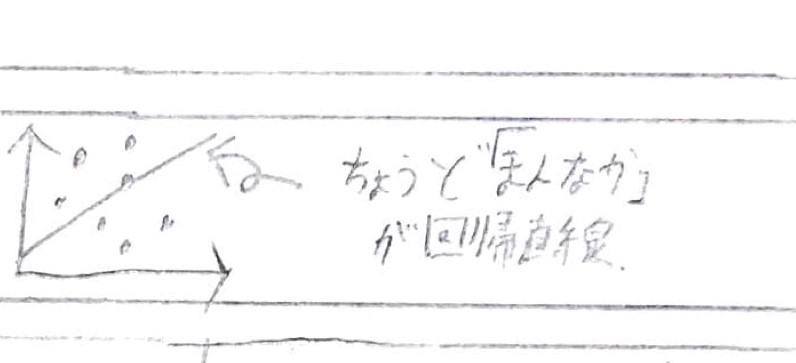 ちょうど「まんなか」
が回帰直線.